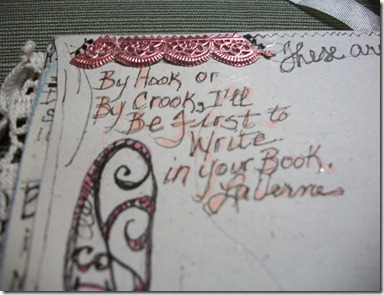 These are
By Hook or
By Crook, I'll
Be first to
Write
in your Book.
Laverne